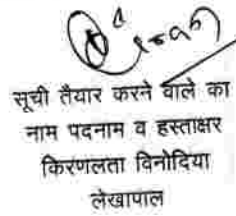 सूची तैयार करने वाले का
नाम पदनाम व हस्ताक्षर
किरणलता विनोदिया
लेखापाल